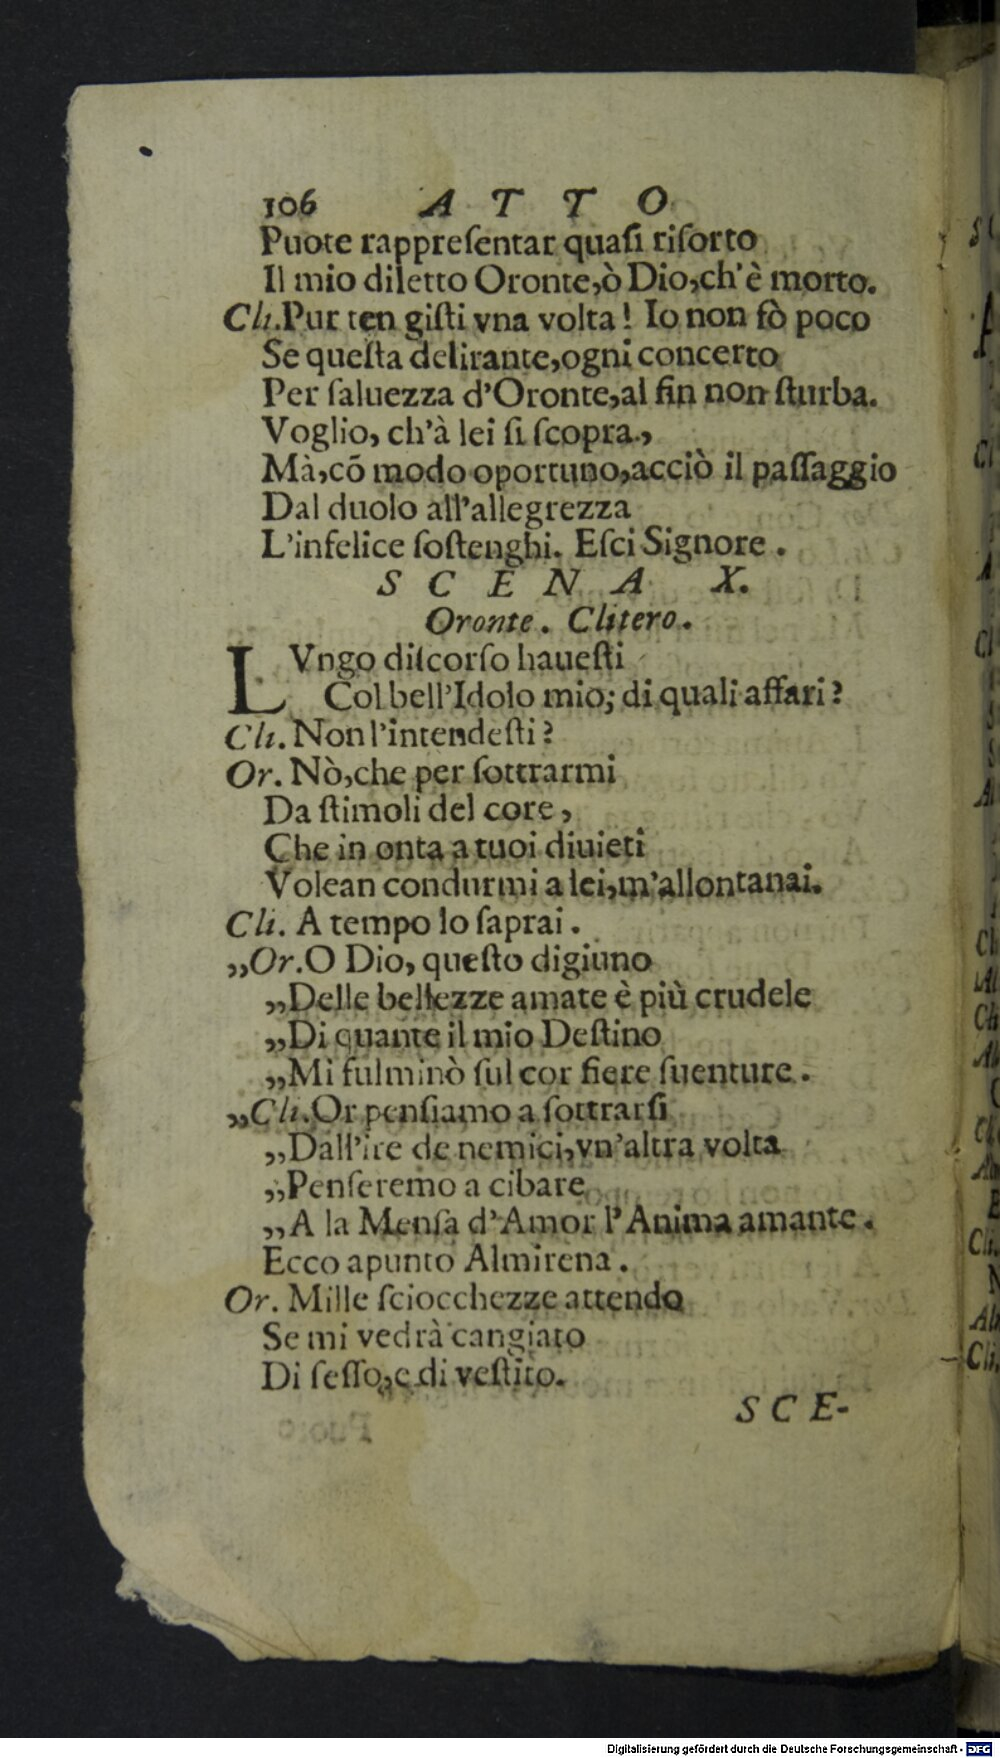 106 A T T O
Puote rappreſentar quaſi riſorto
Il mio diletto Oronte,ò Dio,ch'è morto.
Cli.Pur ten giſti vna volta! Io non fò poco
Se queſta delirante,ogni concerto
Per ſaluezza d'Oronte,al fin non ſturba.
Voglio, ch'à lei ſi ſcopra,
Mà,cõ modo oportuno,acciò il paſſaggio
Dal duolo all'allegrezza
L'infelice ſoſtenghi. Eſci Signore.
S C E N A X.
Oronte. Clitero.
LVngo diſcorſo haueſti
Col bell'Idolo mio; di quali affari?
Cli. Non l'intendeſti?
Or. Nò,che per ſottrarmi
Da ſtimoli del core,
Che in onta a tuoi diuieti
Volean condurmi a lei,m'allontanai.
Cli. A tempo lo ſaprai.
„Or.O Dio, queſto digiuno
„Delle bellezze amate è più crudele
„Di quante il mio Deſtino
„Mi fulminò ſul cor fiere ſuenture.
„Cli.Or penſiamo a ſottrarſi
„Dall'ire de nemici,vn'altra volta
„Penſeremo a cibare
„A la Menſa d'Amor l'Anima amante.
Ecco apunto Almirena.
Or. Mille ſciocchezze attendo
Se mi vedrà cangiato
Di ſeſſo,e di veſtito.
S C E-
Digitalisierung gefördert durch die Deutsche Forschungsgemeinschaft - DFG